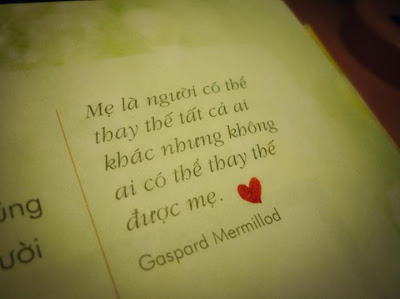 Mẹ là người có thể
thay thế tất cả ai
khác nhưng không
ai có thể thay thế
được mẹ.
Gaspard Mermillod
ười